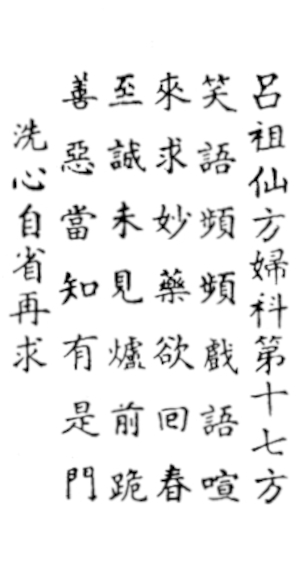 呂祖仙方婦科第十七方
笑語頻頻戲語喧
來求妙藥欲回春
至誠未見爐前跪
善惡當知有是門
洗心自省再求